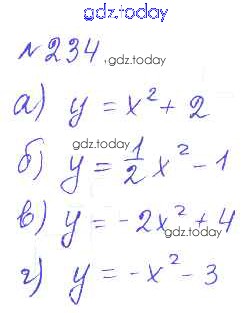 gdz.today
№234
gdz.today
а) y = x² + 2
gdz.today
б) y = 1/2 x² - 1
в) y = -2x² + 4
gdz.today
г) y = -x² - 3
gdz.today